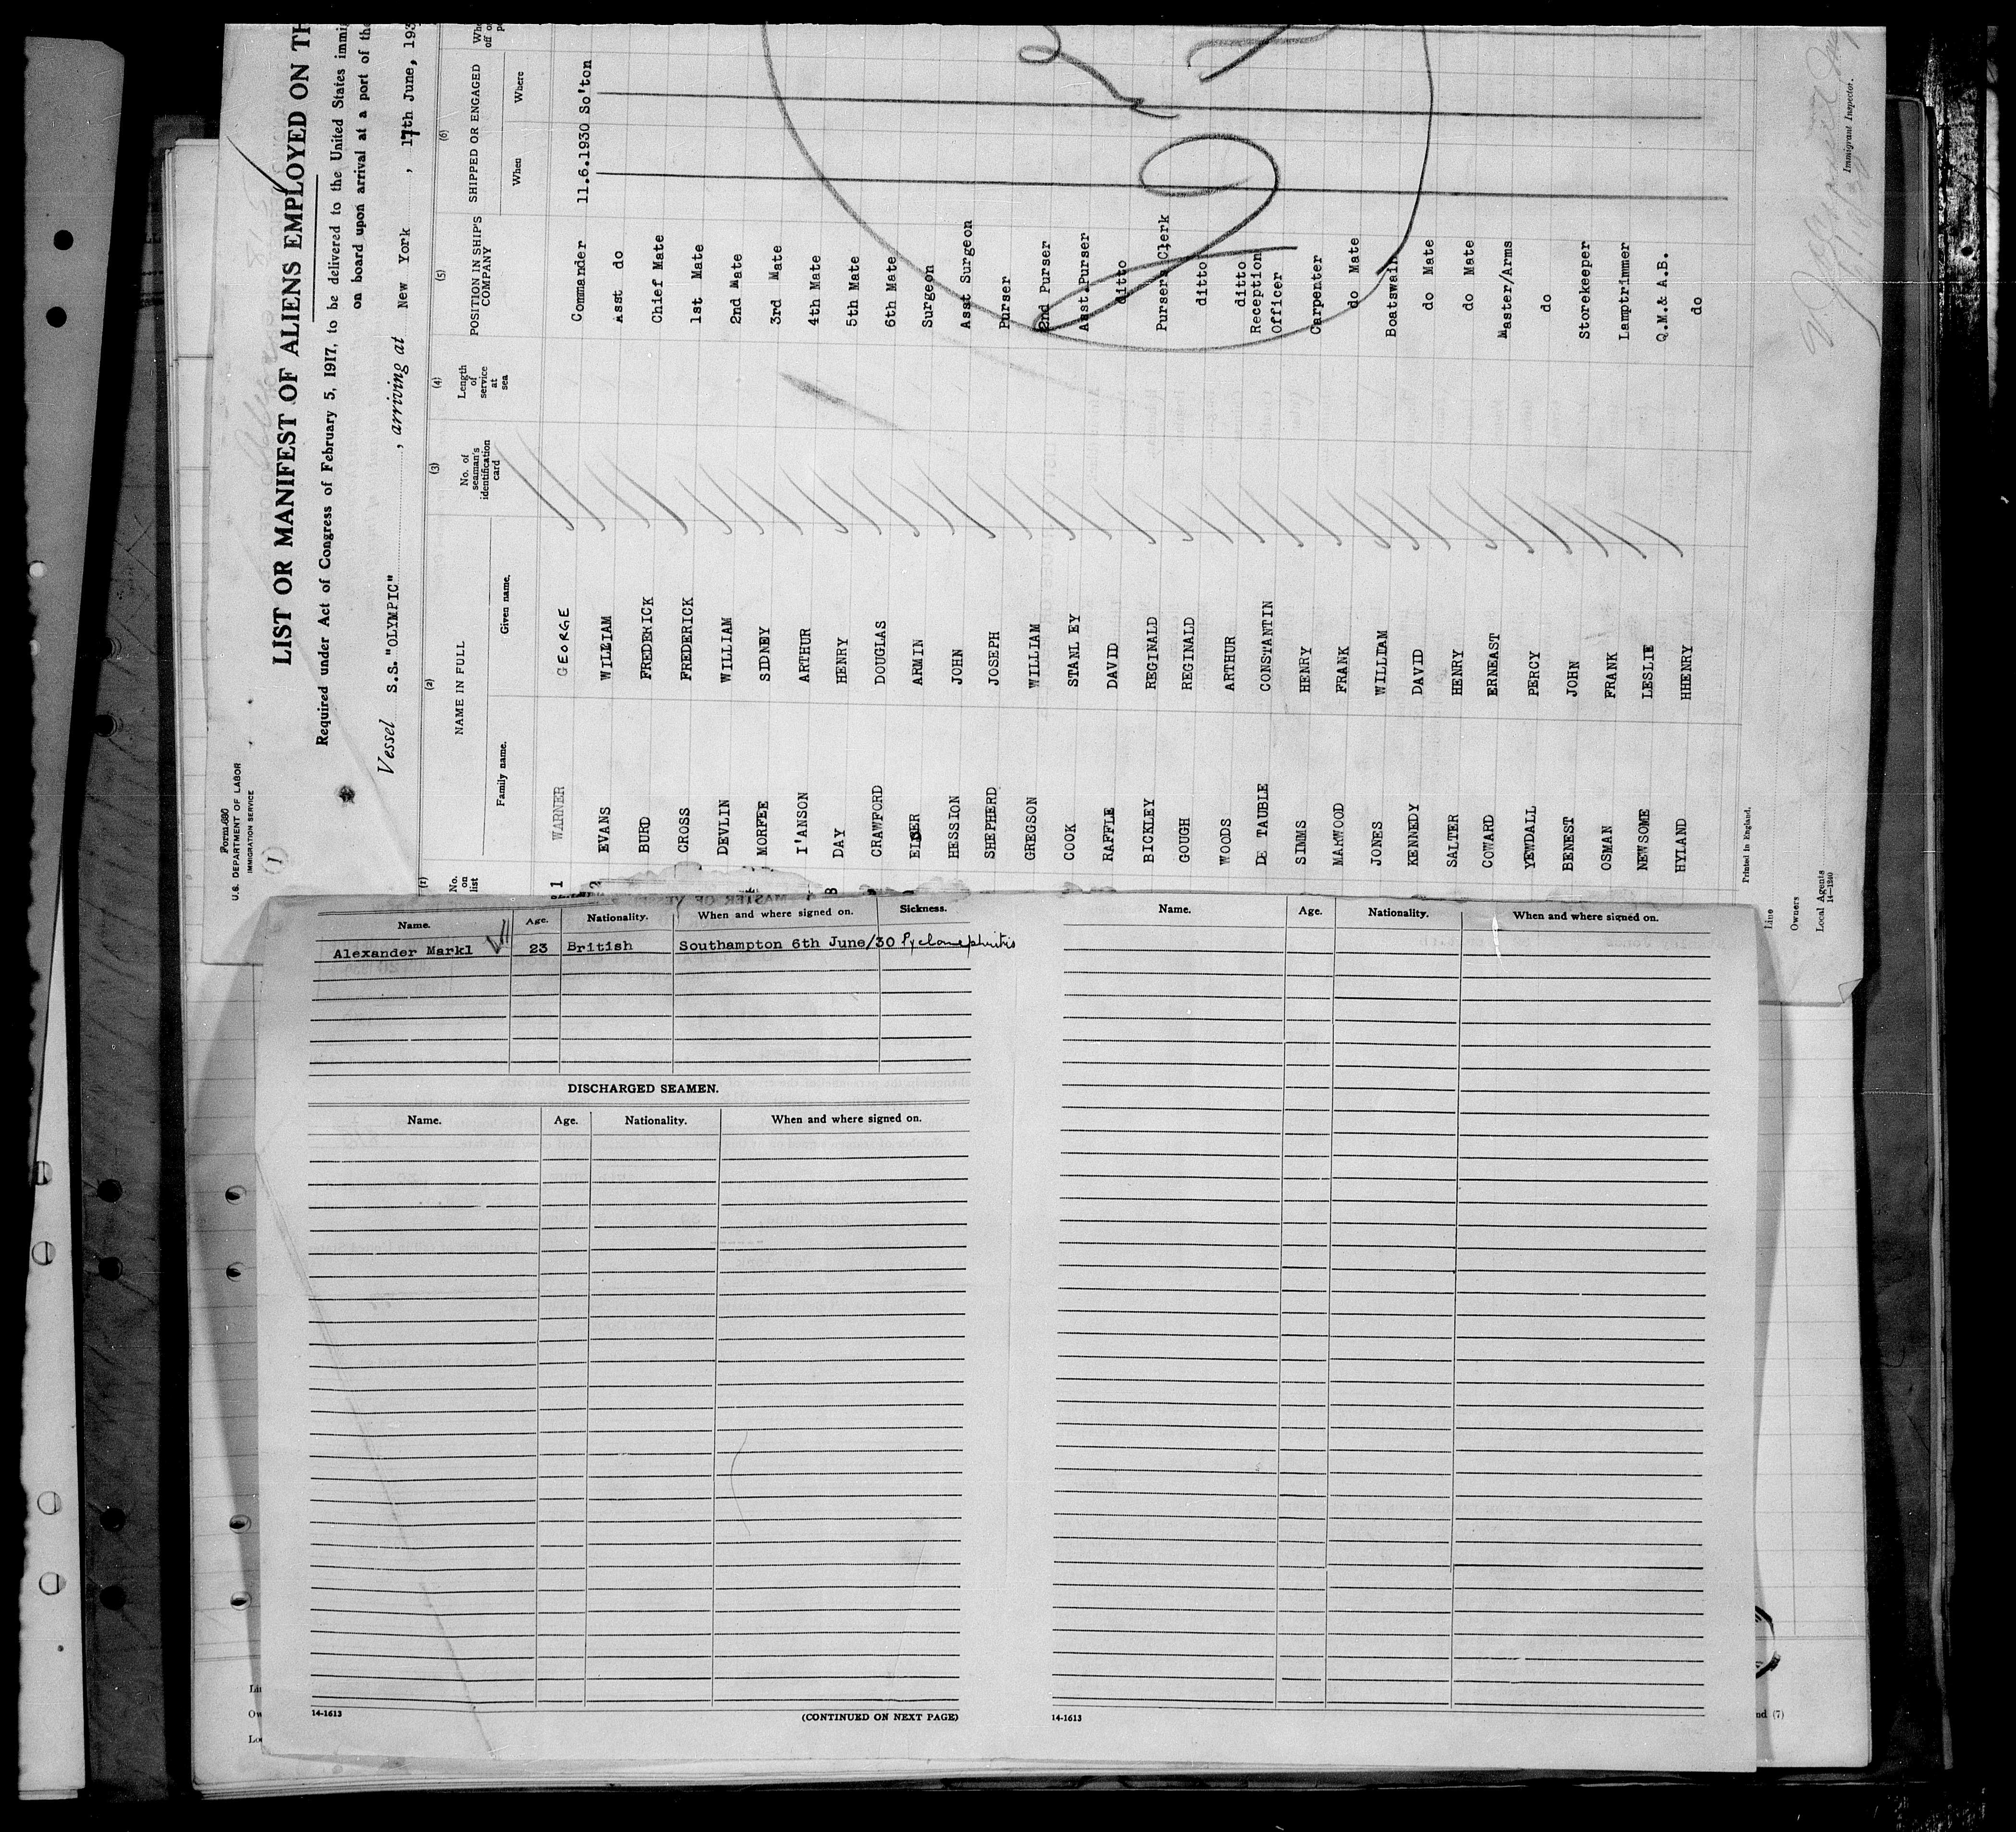 Form 680
U.S. DEPARTMENT OF LABOR
IMMIGRATION SERVICE
(1)
LIST OR MANIFEST OF ALIENS EMPLOYED ON TH
Required under Act of Congress of February 5, 1917, to be delivered to the United States immi
on board upon arrival at a port of the
Vessel S.S. "OLYMPIC", arriving at New York, 17th June, 193
(1) (2) (3) (4) (5) (6)
No. on list NAME IN FULL No. of seaman's identification card Length of service at sea POSITION IN SHIP'S COMPANY SHIPPED OR ENGAGED
Family name. Given name. When Where
1 WARNER GEORGE Commander 11.6.1930 So'ton
2 EVANS WILLIAM Asst do
BURD FREDERICK Chief Mate
CROSS FREDERICK 1st Mate
DEVLIN WILLIAM 2nd Mate
MORFEE SIDNEY 3rd Mate
I'ANSON ARTHUR 4th Mate
DAY HENRY 5th Mate
CRAWFORD DOUGLAS 6th Mate
ARMIN Surgeon
HESSION JOHN Asst Surgeon
SHEPHERD JOSEPH Purser
GREGSON WILLIAM 2nd Purser
COOK STANLEY Asst.Purser
RAFFLE DAVID ditto
BICKLEY REGINALD Pursers Clerk
GOUGH REGINALD ditto
WOODS ARTHUR ditto
DE TAUBLE CONSTANTIN Reception Officer
SIMMS HENRY Carpenter
MARWOOD FRANK do Mate
JONES WILLIAM Boatswain
KENNEDY DAVID do Mate
SALTER HENRY do Mate
COWARD ERNEAST Master/Arms
YEWDALL PERCY do
BENEST JOHN Storekeeper
OSMAN FRANK Lamptrimmer
NEWSOME LESLIE Q.M.& A.B.
HYLAND HHENRY do
Printed in England.
Line
Owners
Local Agents
14-1240
Immigrant Inspector.
Name. Age. Nationality. When and where signed on. Sickness.
Alexander Markl 23 British Southampton 6th June/30 Pyelonephritis
DISCHARGED SEAMEN.
Name. Age. Nationality. When and where signed on.
14-1613 (CONTINUED ON NEXT PAGE)
Name. Age. Nationality. When and where signed on.
14-1613
nd (7)